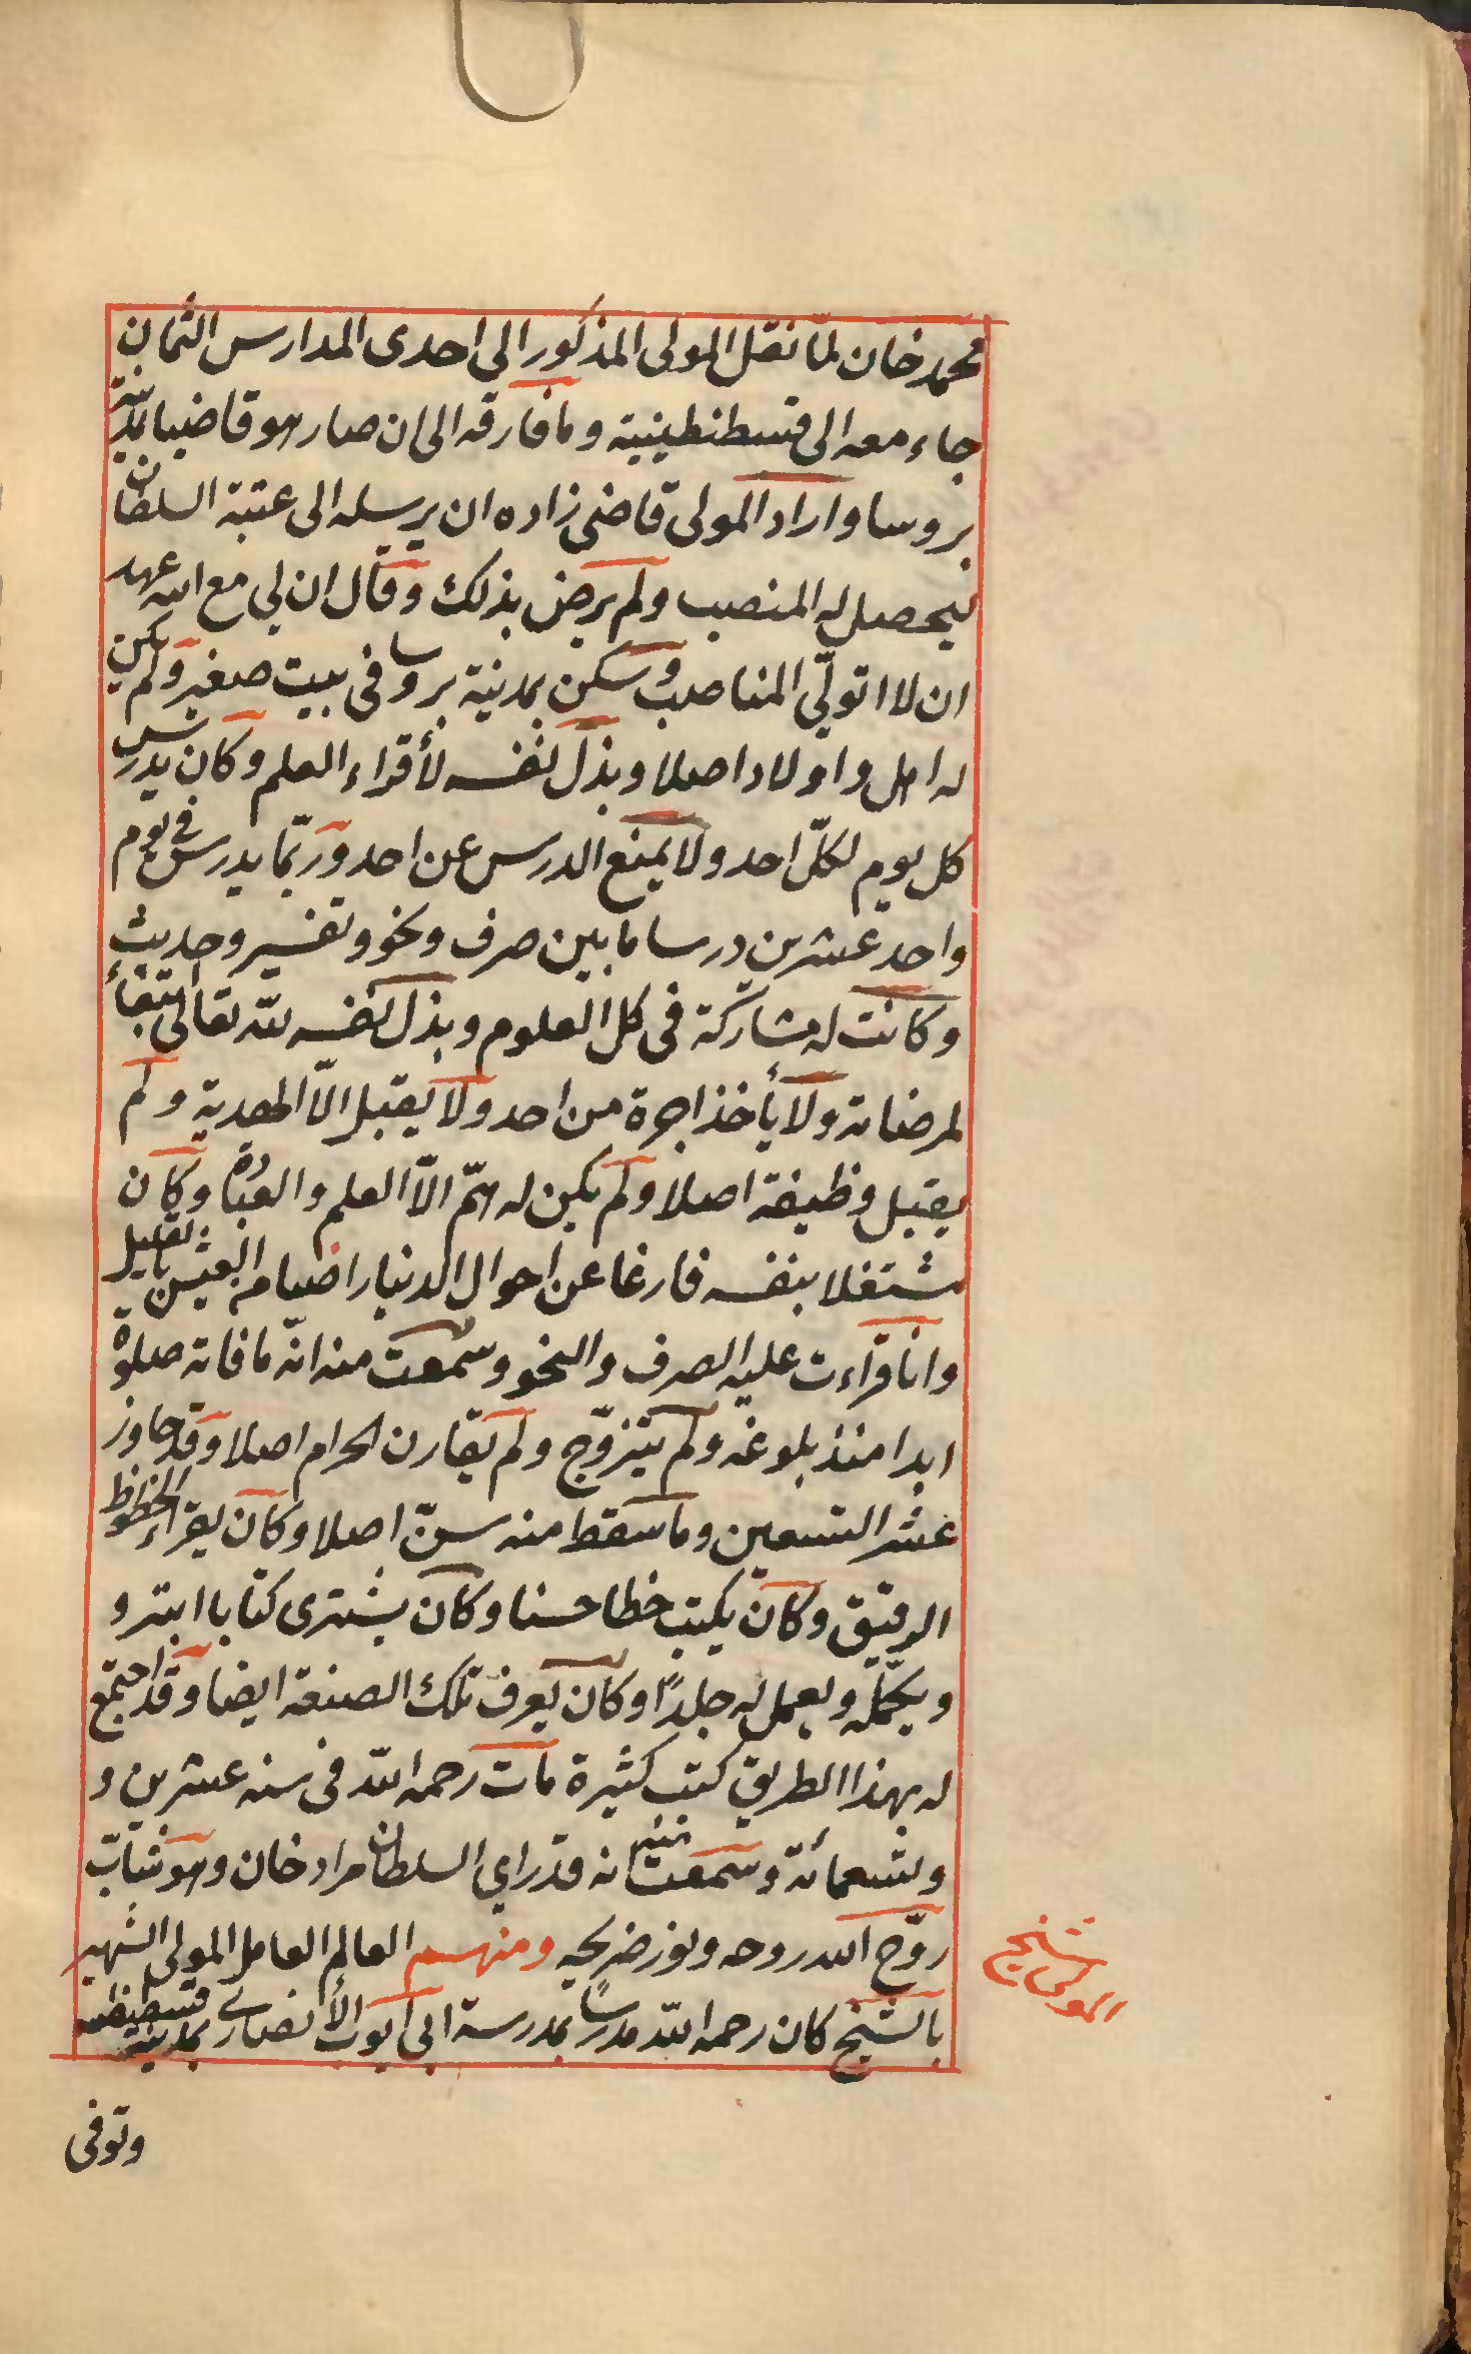 محمد خان لمّا نقل المولى المذكور الى احدى المدارس الثمان
جاء معه الى قسطنطينية وما فارقه الى ان صار هو قاضيا بمدينة
بروسا واراد المولى قاضى زاده ان يرسله الى عتبة السلطان
ليحصل له المنصب ولم يرض بذلك وقال ان لي مع الله عهد
ان لا اتولّي المناصب وسكن بمدينة بروسا فى بيت صغير ولم يكن
له اهل واولاد اصلا وبذل نفسه لأقراء العلم وكان يدرس
كل يوم لكلّ احد ولا يمنع الدرس عن احد وربّما يدرس فى يوم
واحد عشرين درسا ما بين صرف ونحو وتفسير وحديث
وكانت له مشاركة فى كل العلوم وبذل نفسه لله تعالى ابتغاء
لمرضاته ولا يأخذ اجرة من احد ولا يقبل الّا الهدية ولم
يقبل وظيفة اصلا ولم يكن له همّ الّا العلم والعبادة وكان
مشتغلا بنفسه فارغا عن احوال الدنيا راضيا من العيش بالقليل
وانا قراءت عليه الصرف والنحو وسمعت منه انّه ما فاته صلوة
ابدا منذ بلوغه ولم يتزوّج ولم يقارن الحرام اصلا وقد جاوز
عشر التسعين وما سقط منه سنّ اصلا وكان يقراء الخطوط
الدقيق وكان يكتب خطا حسنا وكان يشترى كتابا ابتر و
ويكمّله ويعمل له جلدًا وكان يعرف تلك الصنعة ايضا وقد اجتمع
له بهذا الطريق كتب كثيرة مات رحمه الله فى سنه عشرين و
وتسعمائة وسمعت منه انه قد راي السلطان مراد خان وهو شابّ
روّح الله روحه ونور ضريحه ومنهم العالم العامل المولى الشهير
بالشيخ كان رحمه الله مدرسًا بمدرسة ابى ايوب الأنصاري بمدينة قسطنطنية
المولى شيخ
وتوفى